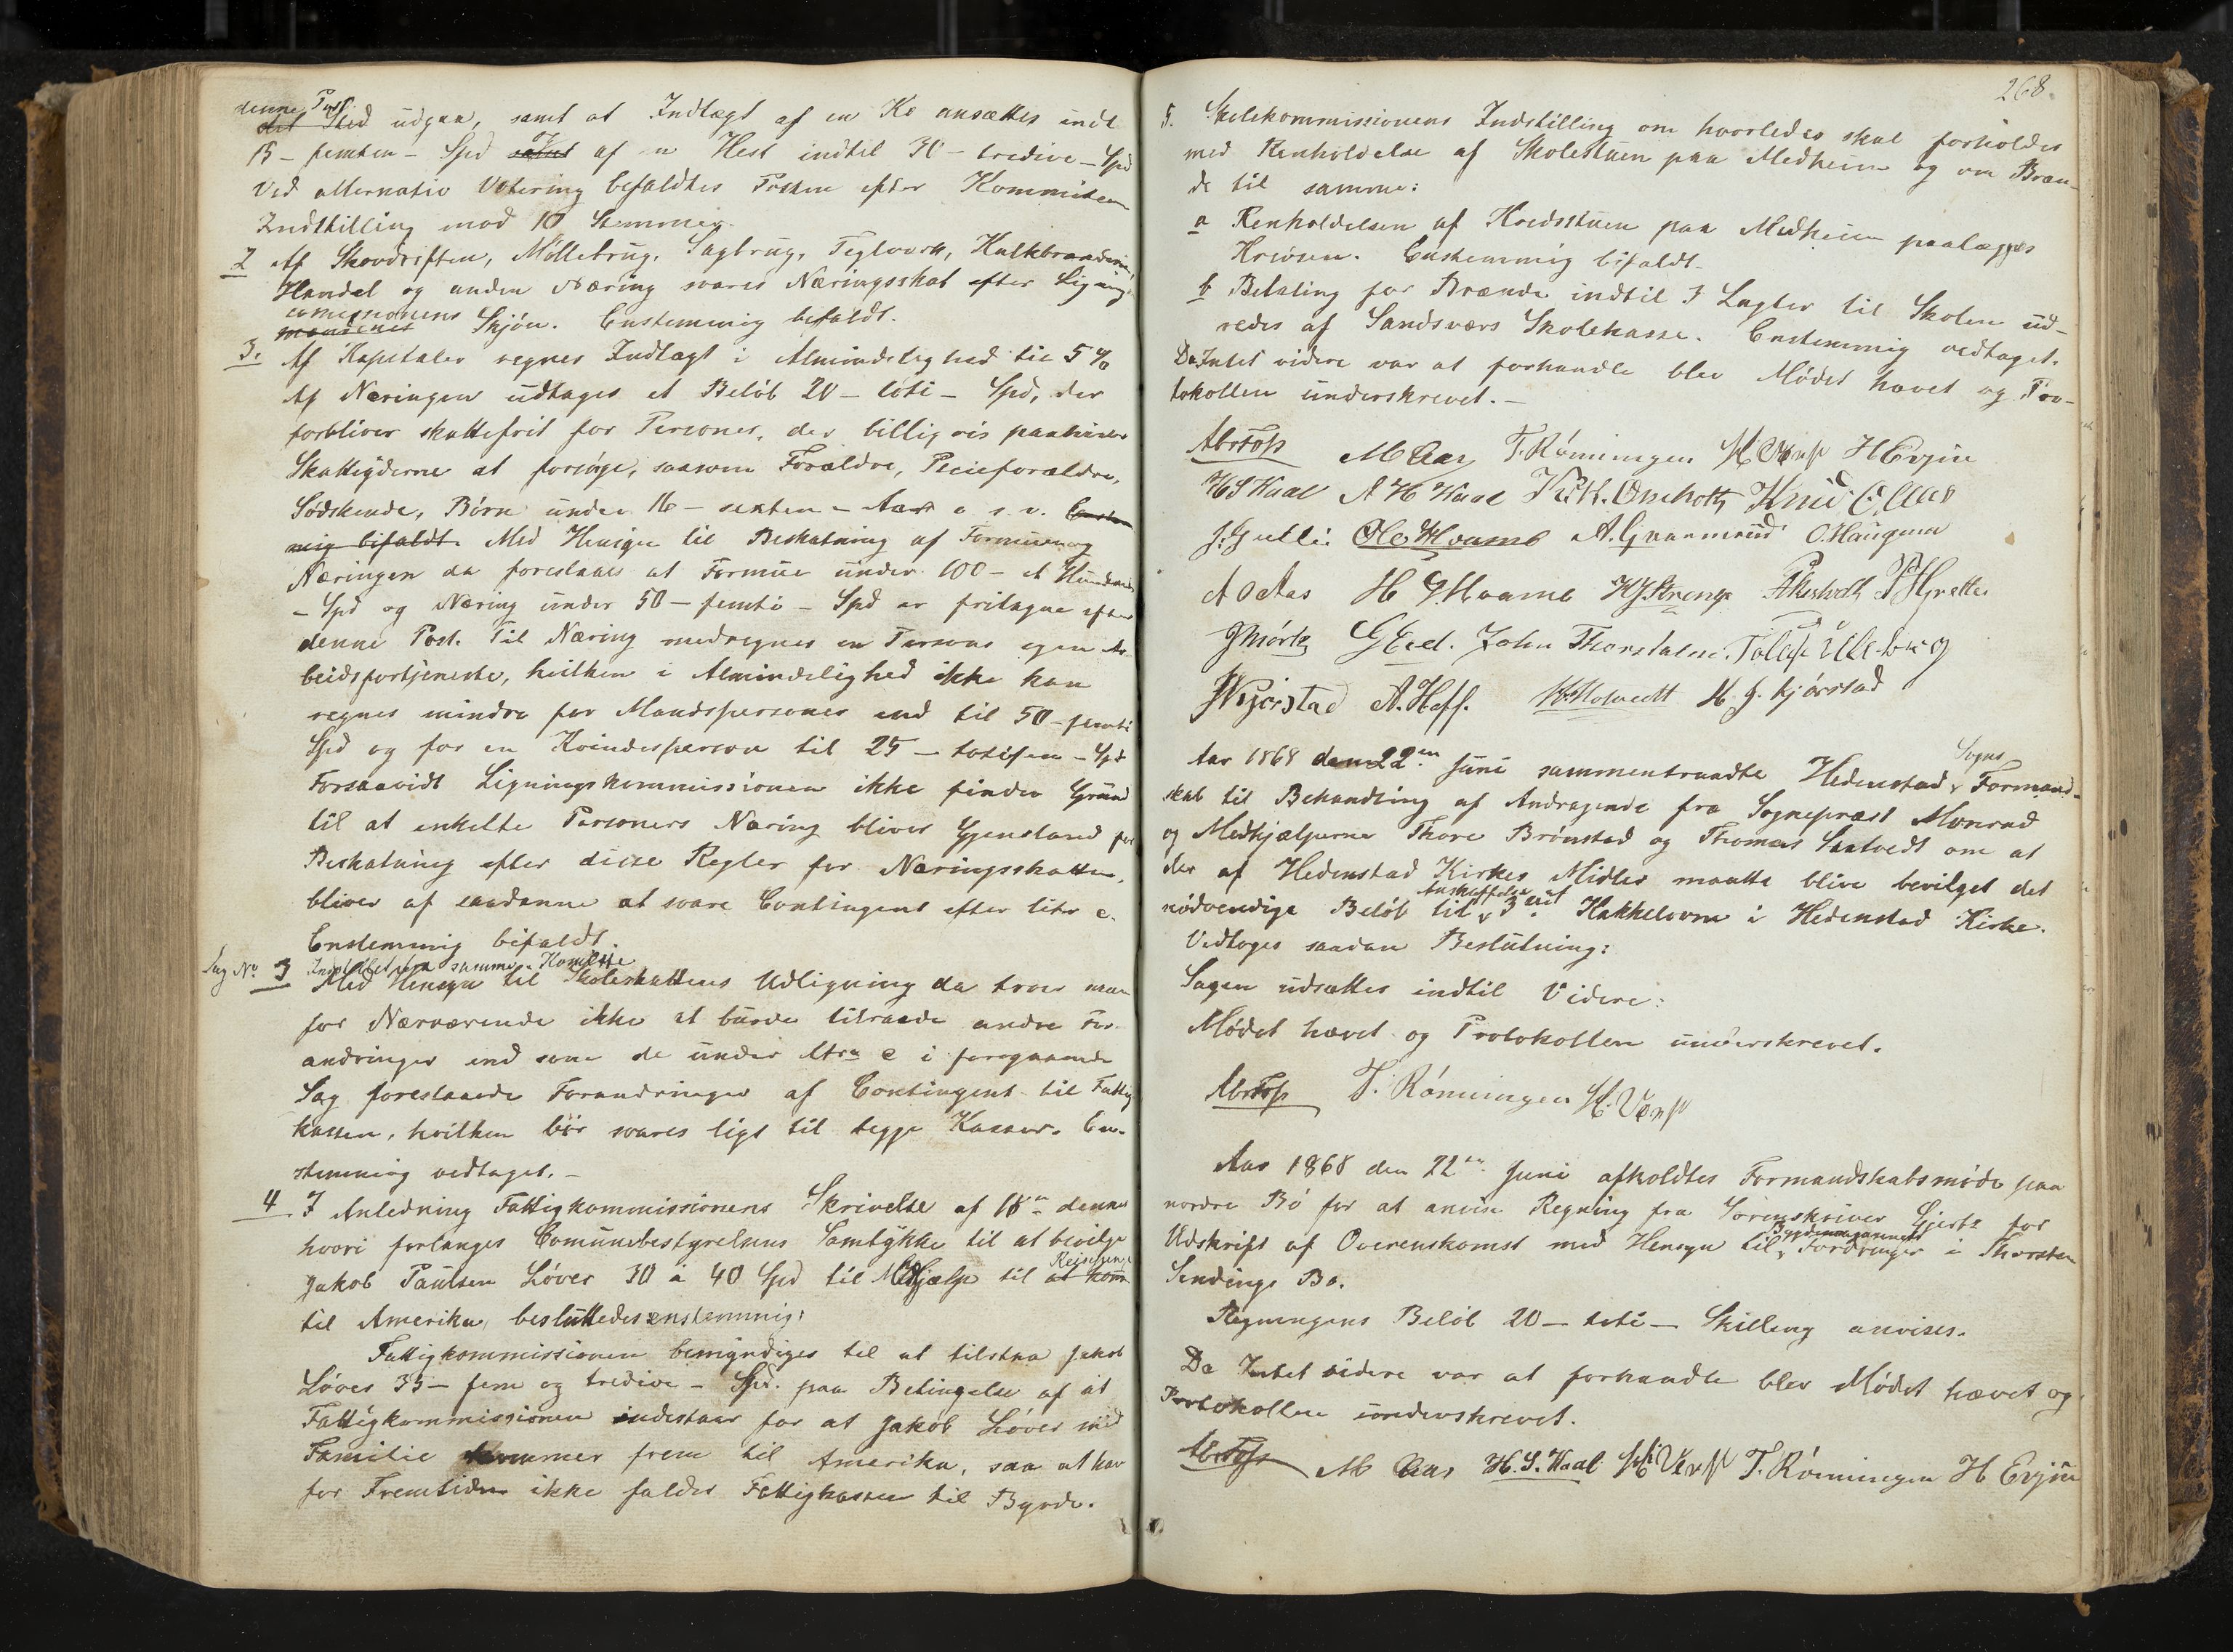 denne Post
det Sted udgaa, samt at Indtægt af en Ko ansættes indt
15 – femten – Spd samt og af en Hest indtil 30 – tredive – Spd
Ved alternativ Votering bifaldtes Posten efter Kommiteen
Indstilling mod 10 Stemmer.
2 Af Skovdriften, Møllebrug, Sagbrug, Teglværk, Kalkbrænderie,
Handel og anden Næring svares Næringsskat efter Lignings
comissionens
mændenes Skjøn. Enstemmig bifaldt.
3. Af Kapitaler regnes Indtægt i Almindelighed til 5 %
Af Næringen udtages et Beløb 20 – toti – Spd, der
forbliver skattefrit for Personer, der billigvis paahviler
Skatteyderne at forsørge, saasom Forældre, Pleieforældre,
Sødskende, Børn under 16 – sexten – Aar o. s. v. Enstem
mig bifaldt. Med Hensyn til Beskatning af Formue og
Næringen da foreslaaes at Formue under 100 – et Hundrede
– Spd og Næring under 50 – femti – Spd er fritagne efter
denne Post. Til Næring medregnes en Persons egen Ar-
beidsfortjeneste, hvilken i Almindelighed ikke kan
regnes mindre for Mandspersoner end til 50 – femti
Spd og for en Kvindesperson til 25 – totifem – Spd
Forsaavidt Ligningskommissionen ikke finder Grund
til at enkelte Personers Næring bliver Gjenstand for
Beskatning efter disse Regler for Næringsskatten,
bliver af saadanne at svare Contingent efter litr c.
Enstemmig bifaldt.
Sag No 3 Indstillet fra samme Komitte
Med Hensyn til Skoleskattens Udligning da troer man
for Nærværende ikke at burde tilraade andre For-
andringer end som de under litra c i foregaaende
Sag foreslaaede Forandringer af Contingent til Fattig
kassen, hvilken bør svares ligt til begge Kasser. En-
stemmig vedtaget. –
4. I Anledning Fattigkommissionens Skrivelse af 18de dennes
hvori forlanges Comunebestyrelsens Samtykke til at bevilge
Reisepenge
Jakob Paulsen Løver 30 à 40 Spd til Medhjælp til at kom
til Amerika, besluttedes enstemmig:
Fattigkommissionen bemyndiges til at tilstaa Jakob
Løver 35 – fem og tredive – Spd. paa Betingelse af at
Fattigkommissionen indestaar for at Jakob Løver med
Familie kommer frem til Amerika, saa at han
for Fremtiden ikke falder Fattigkassen til Byrde.
268.
5. Skolekommissionens Indstilling om hvorledes skal forholdes
med Renholdelse af Skolestuen paa Medheim og om Bræn-
de til samme:
a Renholdelsen af Kredsstuen paa Medheim paalægges
Kredsen. Enstemmig bifaldt.
b Betaling for Brænde indtil 3 Lagter til Skolen ud-
redes af Sandsværs Skolekasse. Enstemmig vedtaget.
Da Intet videre var at forhandle blev Mødet hævet og Pro-
tokollen underskrevet. –
M Aas T. Rønningen H. Evju
H S Kaal A H Kaal Knud
J. Gulli Ole Hvambe A. Granmund O. Haugum
A O Aas H. G. Hvame
John Thorstulsen
A. Hoff. H. J. Kjørstad
Aar 1868 den 22en Juni sammentraadte Hedenstad Sogns Formand-
skab til Behandling af Andragende fra Sognepræst Monrad
og Medhjælperne Thore Brønstad og Thomas Saatvedt om at
der af Hedenstad Kirkes Midler maatte blive bevilget det
nødvendige Beløb til Anskaffelse af 3de Kakkelovne i Hedenstad Kirke.
Vedtoges saadan Beslutning:
Sagen udsættes indtil Videre:
Mødet hævet og Protokollen underskrevet.
T. Rønningen
Aar 1868 den 22en Juni afholdtes Formandskabsmøde paa
nordre Bø for at anvise Regning fra Sorenskriver Gjerts for
Udskrift af Overenskomst med Hensyn til Bygdemagasinets Fordringer i Thorsten
Sendings Bo.
Regningens Beløb 20 – toti – Skilling anvises.
Da Intet videre var at forhandle blev Mødet hævet og
Protokollen underskrevet.
M Aas H. S. Kaal T. Rønningen H Evju